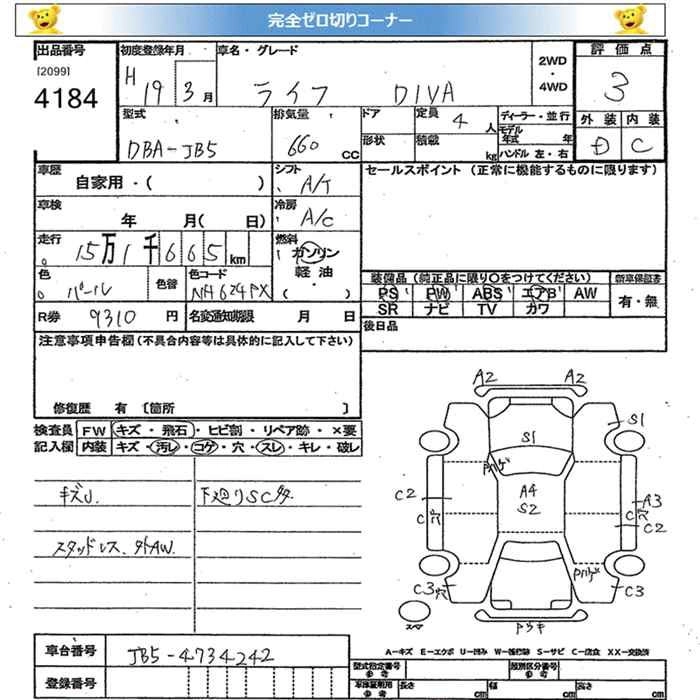 完全ゼロ切りコーナー
出品番号 初度登録年月 車名・グレード 2WD・4WD 評価点
[2099]
4184
H 19 3月 ライフ DIVA 3
型式 排気量 ドア 定員 4人 ディーラー・並行 外装 内装
モデル年式 年
DBA-JB5 660 CC 形状 積載 kg ハンドル 左・右 D C
車歴 シフト セールスポイント (正常に機能するものに限ります)
自家用・( ) A/T
車検 冷房
年 月( 日) A/C
走行 燃料
15万1千665km ガソリン
軽油
・
( )
色 色替 色コード 装備品 (純正品に限り○をつけてください) 新車保証書
パール NH624PX PS PW ABS エアB AW 有・無
SR ナビ TV カワ
R券 9310円 名変通知期限 月 日 後日品
注意事項申告欄(不具合内容等は具体的に記入して下さい)
修復歴 有〔箇所 〕
検査員 FW キズ・飛石・ヒビ割・リペア跡・×要
記入欄 内装 キズ・汚レ・コゲ・穴・スレ・キレ・破レ
キズU 下廻りSC多
スタッドレス、外AW
A2 A2
S1
S1
ハゲ
C2 A4 A3
C S2 C
C2
ハゲ
C3 穴 C3
スペア
A-キズ E-エクボ U-凹み W-補修跡 S-サビ C-腐食 XX-交換済
車台番号 JB5-4734242
登録番号
型式指定番号 参考 類別区分番号 参考
車検証明用 参考 長さ cm 幅 cm 高さ cm